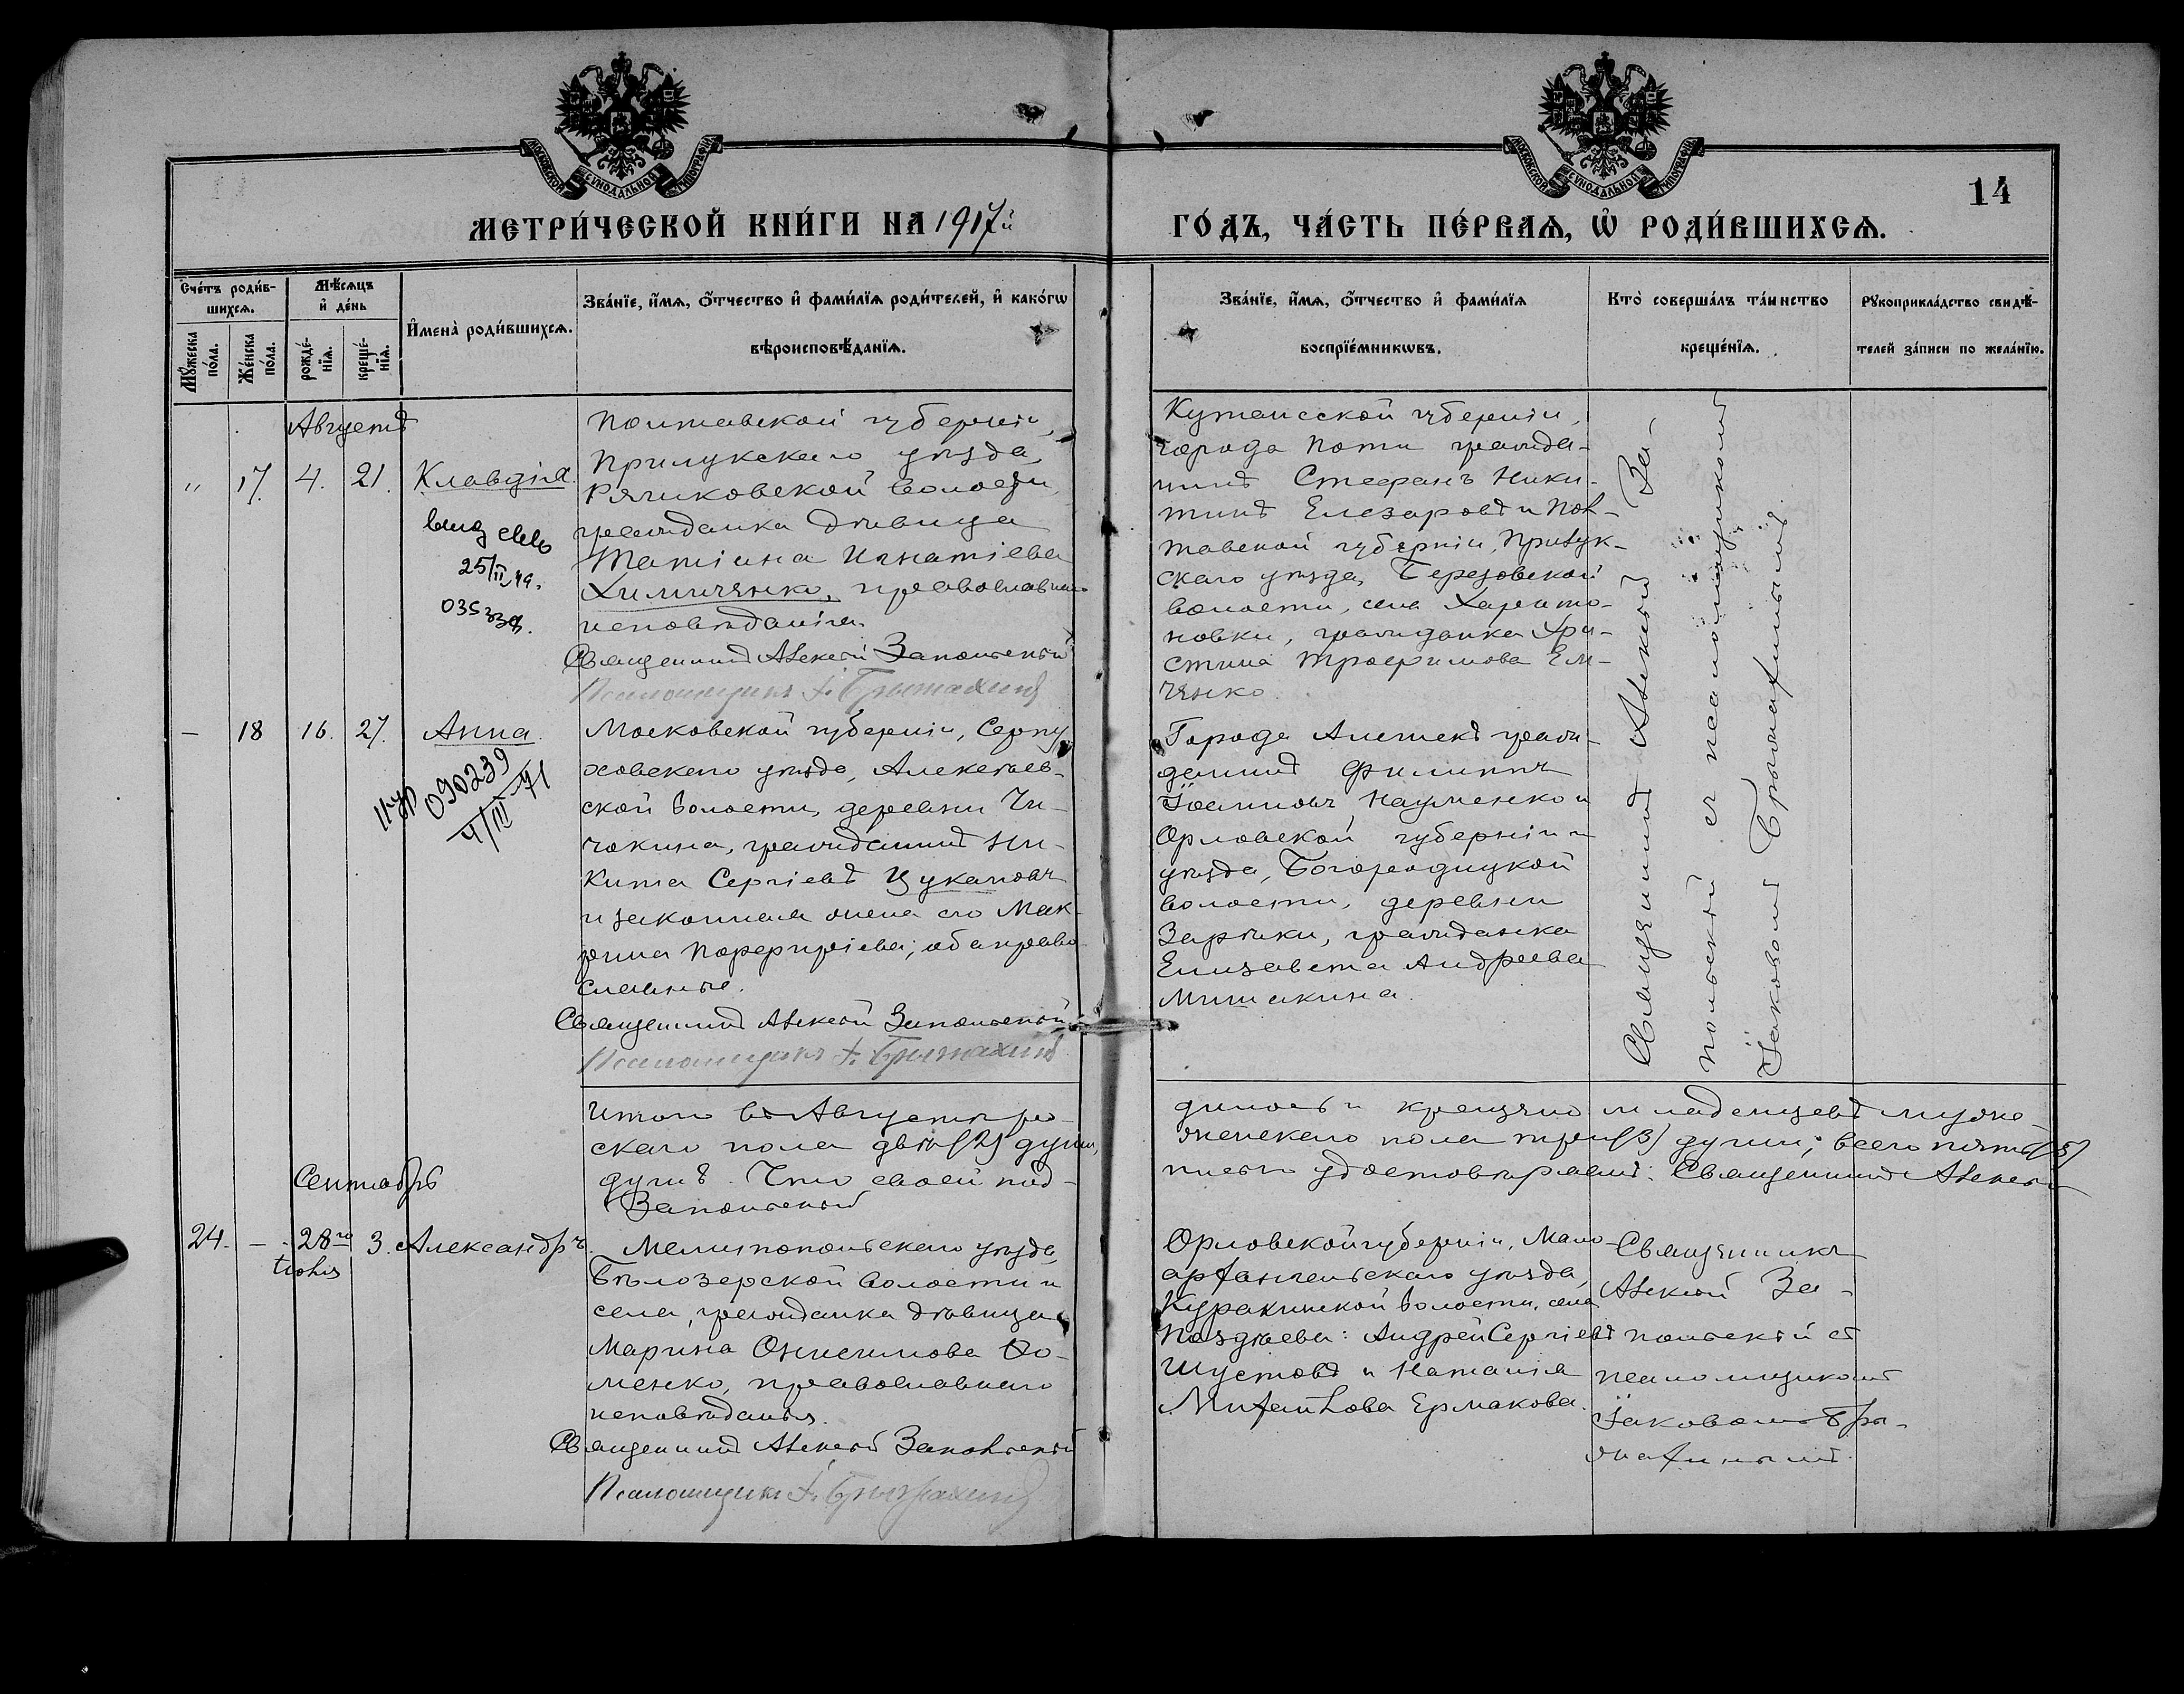 МОСКОВСКОЙ СѴНОДАЛЬНОЙ ТИПОГРАФІИ
МОСКОВСКОЙ СѴНОДАЛЬНОЙ ТИПОГРАФІИ
14
МЕТРИ́ЧЕСКОЙ КНИ́ГИ НА 1917й
ГО́ДЪ, ЧА́СТЬ ПЕ́РВАѦ, Ѡ҆ РОДИ́ВШИХСѦ.
Сче́тъ роди́в-
шихсѧ.
Мꙋ́жеска по́ла.
Же́нска по́ла.
Мѣ́сѧцъ
и҆ де́нь
рожде́-
нїѧ.
креще́-
нїѧ.
И҆мена̀ роди́вшихсѧ.
Зва́нїе, и҆́мѧ, ѻ҆́тчество и҆ фами́лїѧ роди́телей, и҆ како́гѡ
вѣроисповѣ́данїѧ.
Зва́нїе, и҆́мѧ, ѻ҆́тчество и҆ фами́лїѧ
воспрїе́мникѡвъ.
Кто̀ соверша́лъ та́инство
креще́нїѧ.
Рꙋкоприкла́дство свидѣ́-
телей за́писи по жела́нїю.
Августъ
" 17. 4. 21. Клавдія.
25/II 49.
Полтавской губерніи,
Прилукскаго уѣзда,
Рячиковской волости,
гражданка дѣвица
Татіана Игнатіева
Химиченко, православнаго
исповѣданія.
Священникъ Алексѣй Запольскій
Псаломщикъ І. Брыжахинъ
Кутаисской губерніи,
города Поти гражда-
нинъ Стефанъ Ники-
тинъ Елезаровъ и Пол-
тавской губерніи, Прилук-
скаго уѣзда, Березовской
волости, села Харито-
новки, гражданка Хри-
стина Трофимова Ем-
ченко.
Священникъ Алексѣй За-
польскій съ псаломщикомъ
Іаковомъ Брыжахинымъ.
— 18 16. 27. Анна.
090239
4/III 71
Московской губерніи, Серпу-
ховскаго уѣзда, Алексѣев-
ской волости, деревни Чу-
чокина, гражданинъ Ни-
кита Сергіевъ Цукановъ
и законная жена его Мак-
рина Порфиріева; оба право-
славные.
Священникъ Алексѣй Запольскій
Псаломщикъ І. Брыжахинъ
Города Алешекъ граж-
данинъ Филиппъ
Іоанновъ Науменко и
Орловской губерніи и
уѣзда, Богородицкой
волости, деревни
Зарѣчки, гражданка
Елизавета Андреева
Мишакина.
Итого въ Августѣ ро-
дилось и крещено младенцевъ муже-
скаго пола двѣ (2) души,
женскаго пола три (3) души; всего пять (5)
душъ. Что своей под-
писью удостовѣряемъ: Священникъ Алексѣй
Запольскій
Сентябрь
24. — 28го 3. Александръ.
Мелитопольскаго уѣзда,
Бѣлозерской волости и
села, гражданка дѣвица
Марина Онисимова Хо-
менко, православнаго
исповѣданія.
Священникъ Алексѣй Запольскій
Псаломщикъ І. Брыжахинъ
Орловской губерніи, Мало-
архангельскаго уѣзда,
Куракинской волости, села
Поздѣева: Андрей Сергіевъ
Шустовъ и Наталія
Михайлова Ермакова.
Священникъ
Алексѣй За-
польскій съ
псаломщикомъ
Іаковомъ Бры-
жахинымъ.